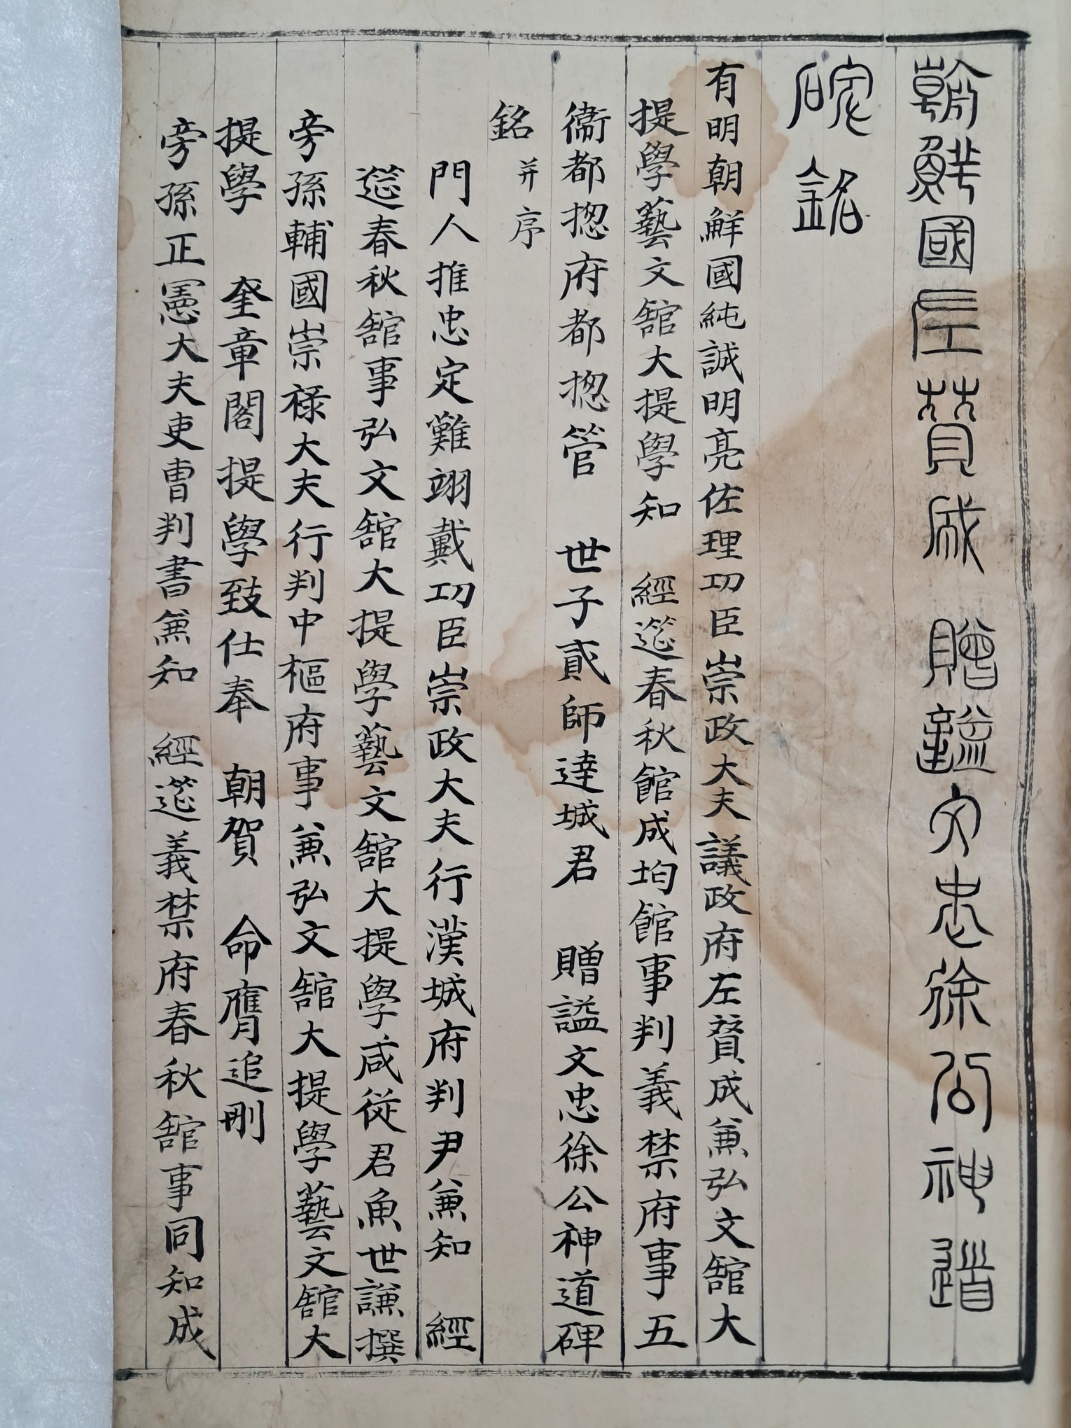 朝鮮國左贊成 贈諡文忠徐公神道
碑銘
有明朝鮮國純誠明亮佐理功臣崇政大夫議政府左贊成兼弘文館大
提學藝文館大提學知 經筵春秋館成均館事判義禁府事五
衞都揔府都揔管 世子貳師達城君 贈諡文忠徐公神道碑
銘 并序
門人推忠定難翊戴功臣崇政大夫行漢城府判尹兼知 經
筵春秋館事弘文館大提學藝文館大提學咸從君魚世謙撰
旁孫輔國崇祿大夫行判中樞府事兼弘文館大提學藝文館大
提學 奎章閣提學致仕奉 朝賀 命膺追刪
旁孫正憲大夫吏曹判書兼知 經筵義禁府春秋館事同知成